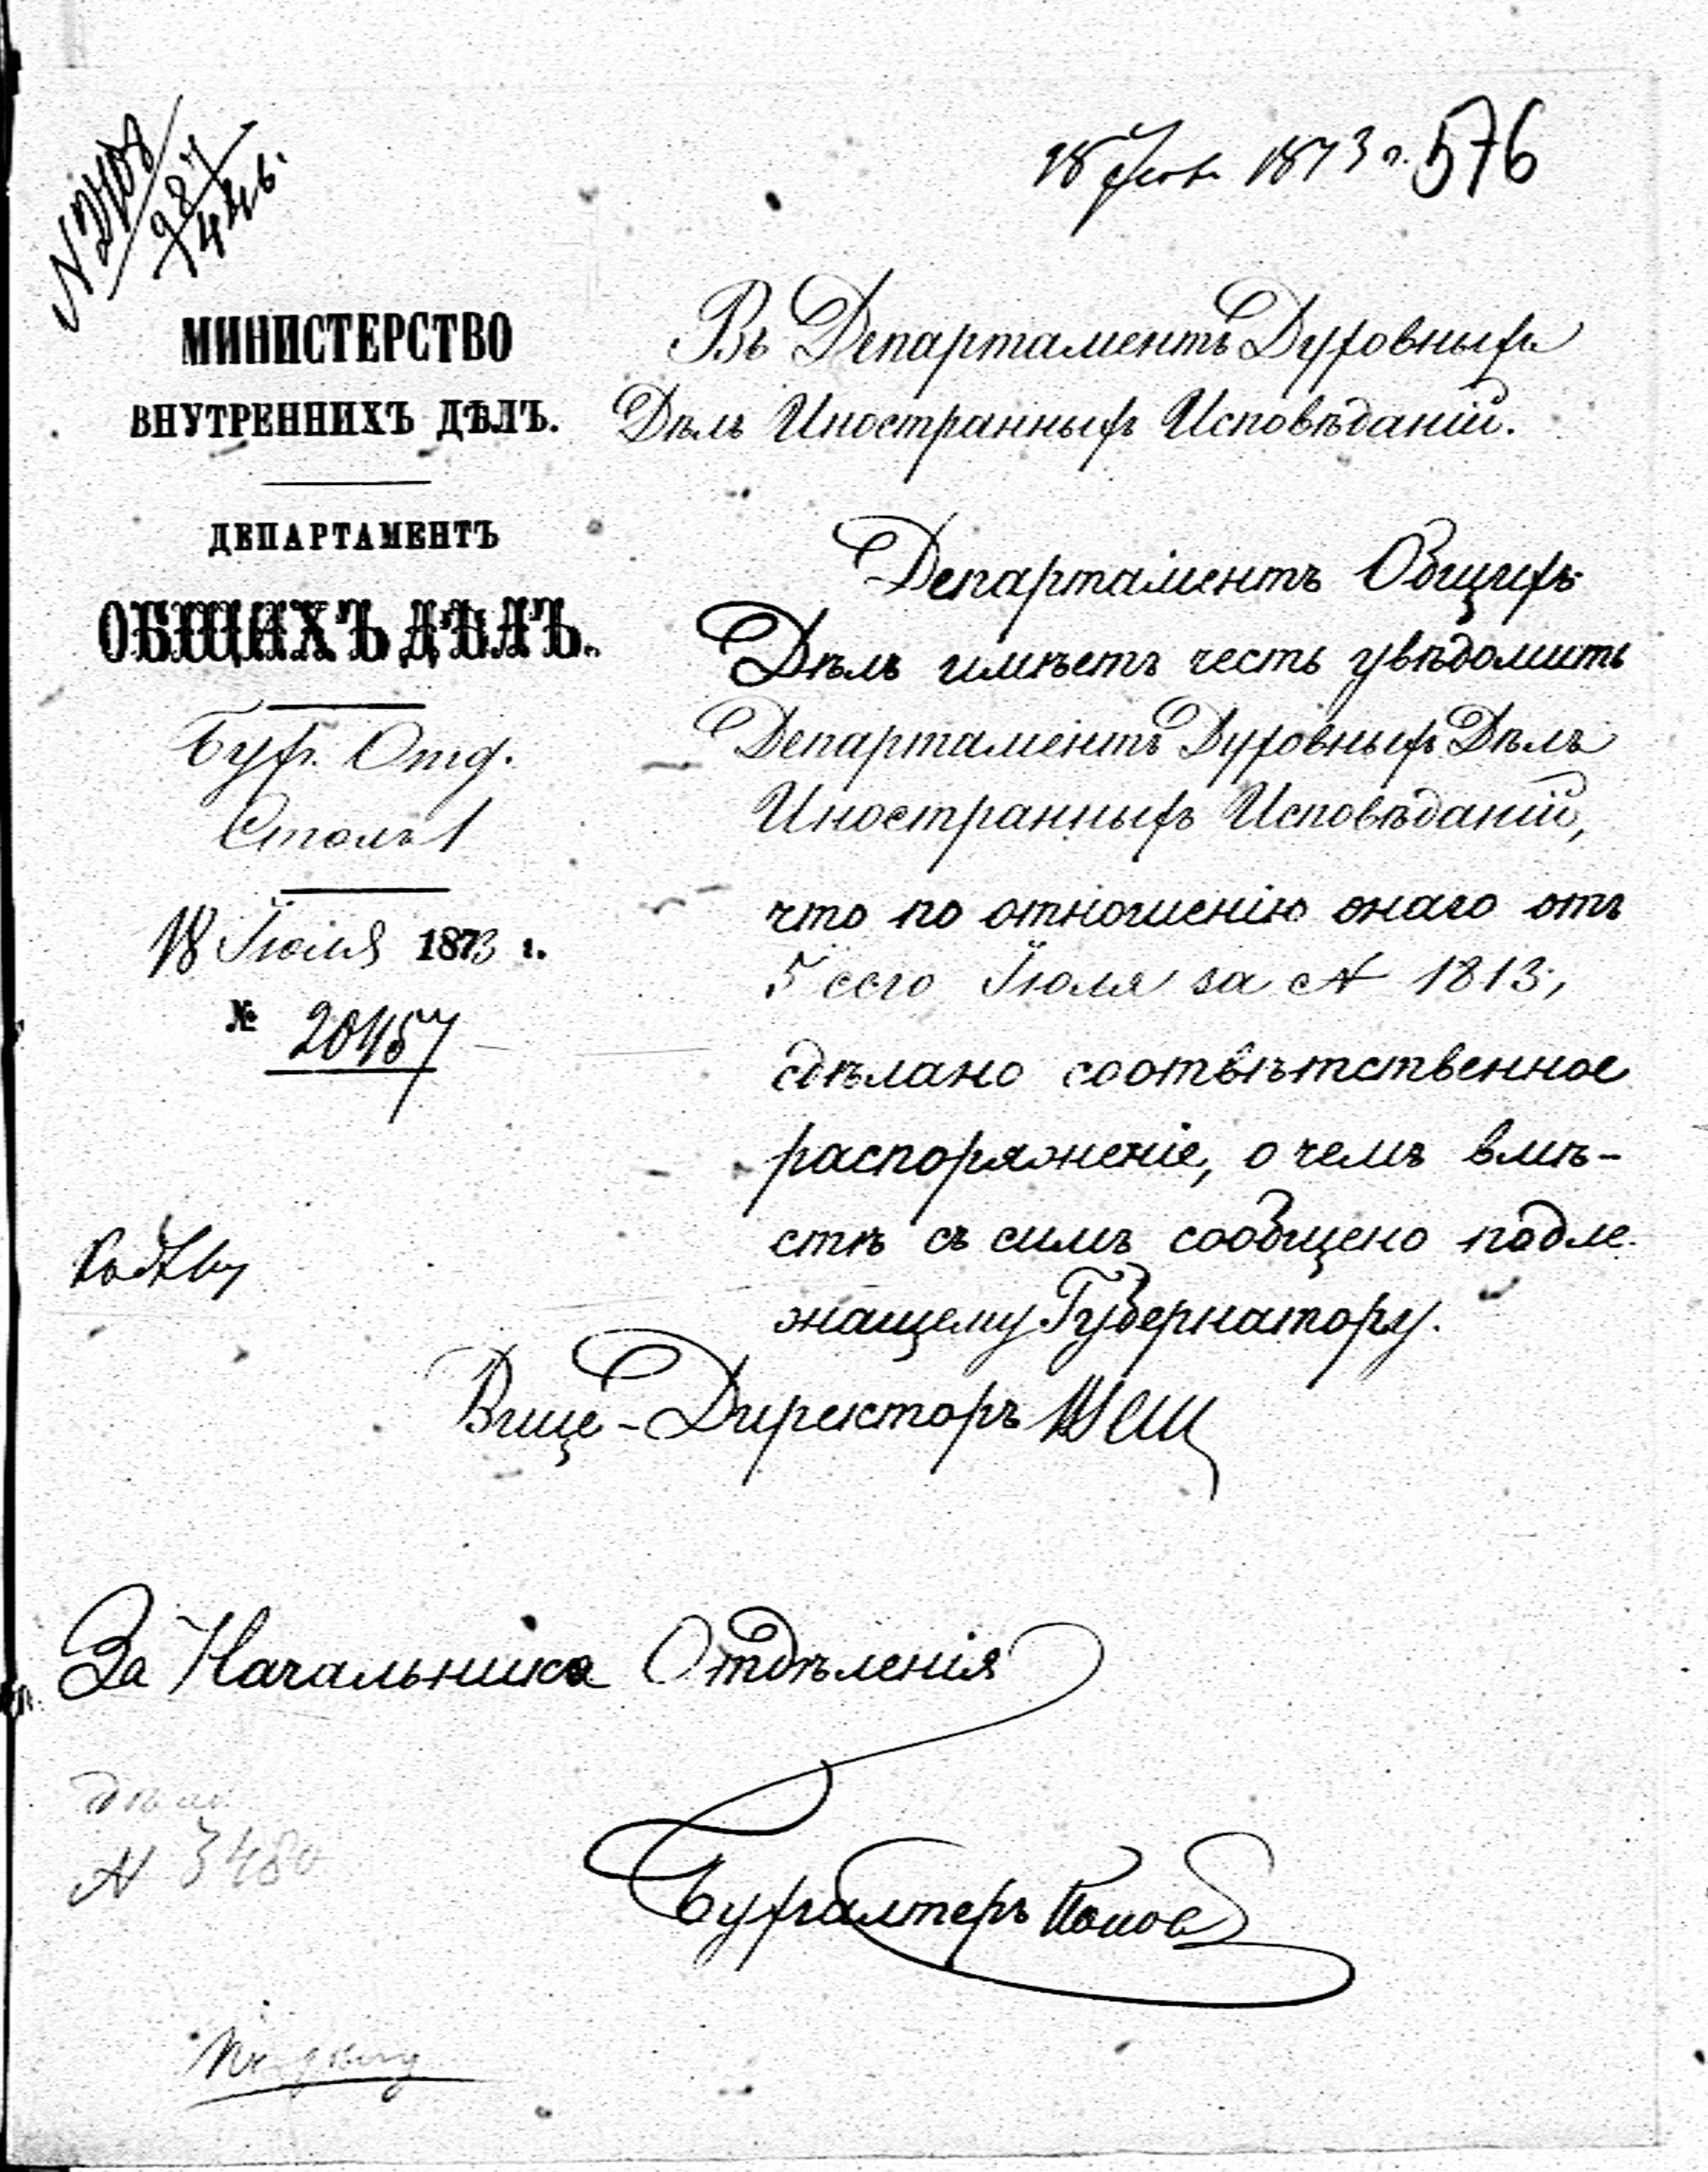 18 Іюл. 1873 г. 576
МИНИСТЕРСТВО
ВНУТРЕННИХЪ ДѢЛЪ.
ДЕПАРТАМЕНТЪ
ОБЩИХЪ ДѢЛЪ.
Бух. Отд.
Столъ 1
18 Іюля 1873 г.
№ 20457
Въ Департаментъ Духовныхъ
Дѣлъ Иностранныхъ Исповѣданій.
Департаментъ Общихъ
Дѣлъ имѣетъ честь увѣдомить
Департаментъ Духовныхъ Дѣлъ
Иностранныхъ Исповѣданій,
что по отношенію онаго отъ
5 сего Іюля за № 1813,
сдѣлано соотвѣтственное
распоряженіе, о чемъ вмѣ-
стѣ съ симъ сообщено подле-
жащему Губернатору.
Вице-Директоръ
За Начальника Отдѣленія
№ 3480
Бухгалтеръ Попов